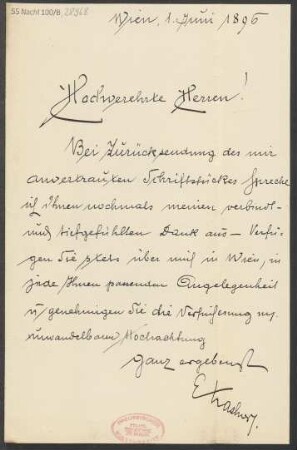 SS Nachl 100/B, 28968
Wien, 1. Juni 1896
Hochverehrte Herren!
Bei Zurücksendung des mir
anvertrauten Schriftstückes spreche
ich Ihnen nochmals meinen verbind-
und tiefgefühlten Dank aus – Verfü-
gen Sie stets über mich in Wien, in
jede Ihnen passenden Angelegenheit
u genehmigen Sie die Versicherung
unwandelbarer Hochachtung
ganz ergebenst